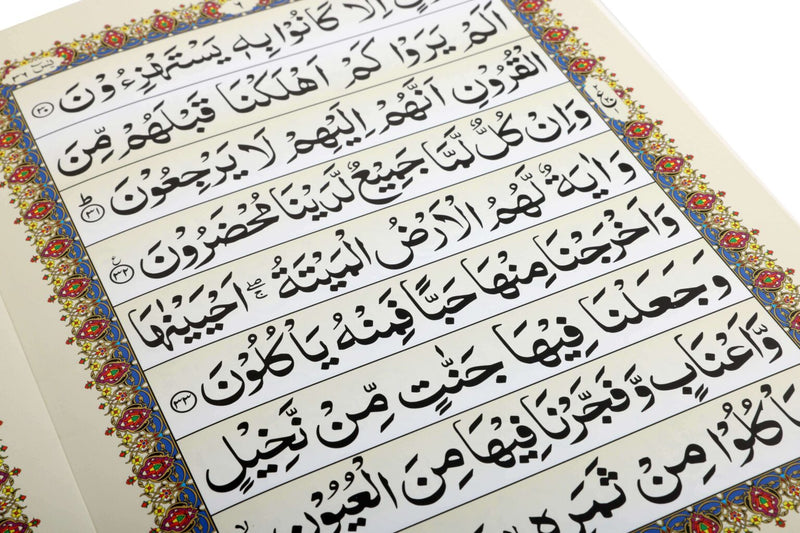 ۶
یٰسٓ ۳۶
اِلَّا كَانُوْا بِهٖ يَسْتَهْزِءُوْنَ ۳۰
اَلَمْ يَرَوْا كَمْ اَهْلَكْنَا قَبْلَهُمْ مِّنَ
الْقُرُوْنِ اَنَّهُمْ اِلَيْهِمْ لَا يَرْجِعُوْنَ ؕ ۳۱
وَاِنْ كُلٌّ لَّمَّا جَمِيْعٌ لَّدَيْنَا مُحْضَرُوْنَ ۳۲
وَاٰيَةٌ لَّهُمُ الْاَرْضُ الْمَيْتَةُ ۖۚ اَحْيَيْنٰهَا
وَاَخْرَجْنَا مِنْهَا حَبًّا فَمِنْهُ يَاْكُلُوْنَ ۳۳
وَجَعَلْنَا فِيْهَا جَنّٰتٍ مِّنْ نَّخِيْلٍ
وَّاَعْنَابٍ وَّفَجَّرْنَا فِيْهَا مِنَ الْعُيُوْنِ
مِنْ ثَمَرِهٖ